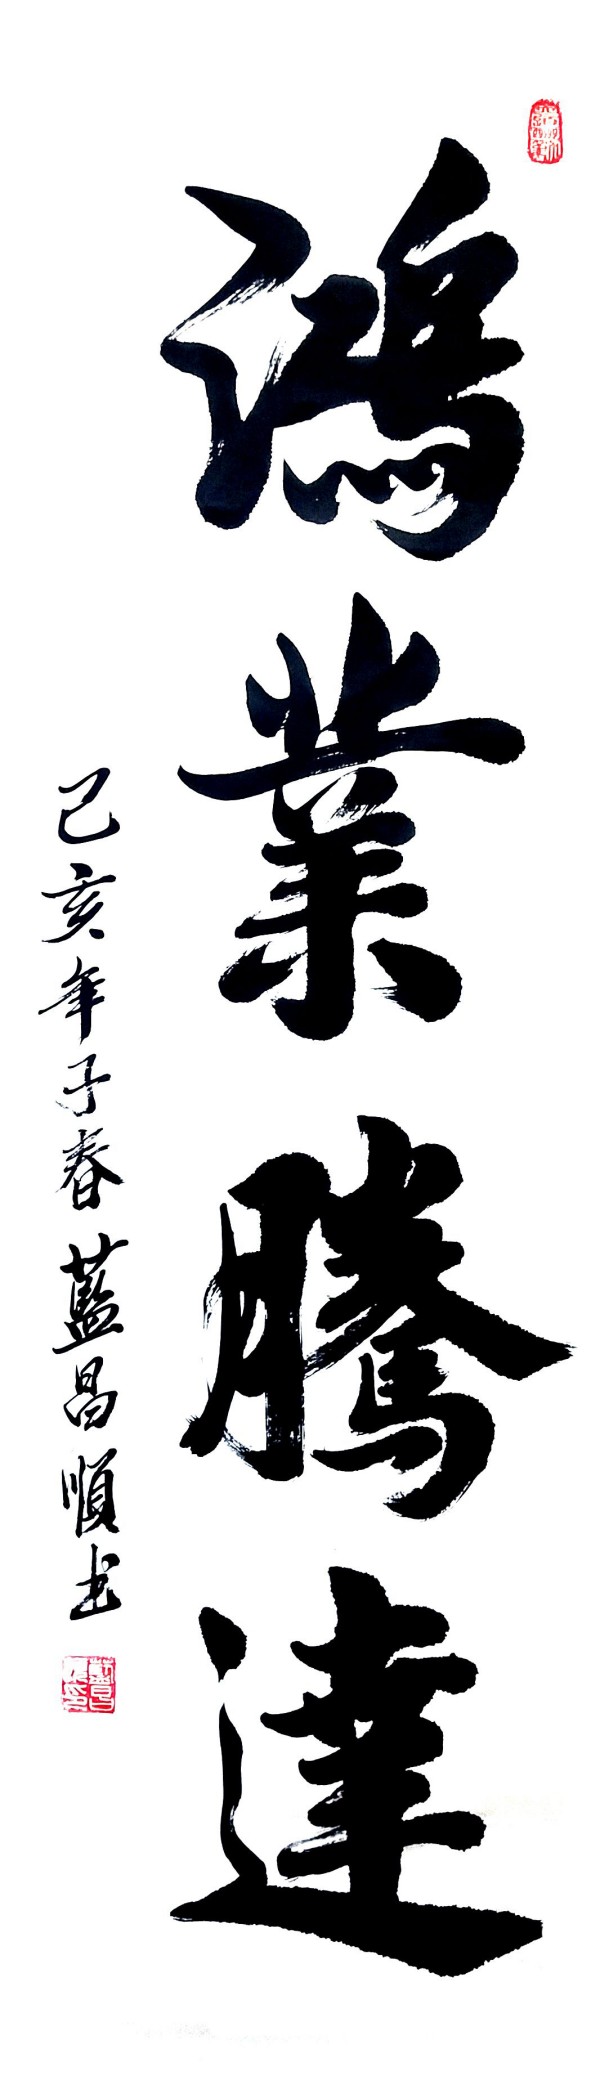 鴻業騰達
己亥年子春藍昌順书